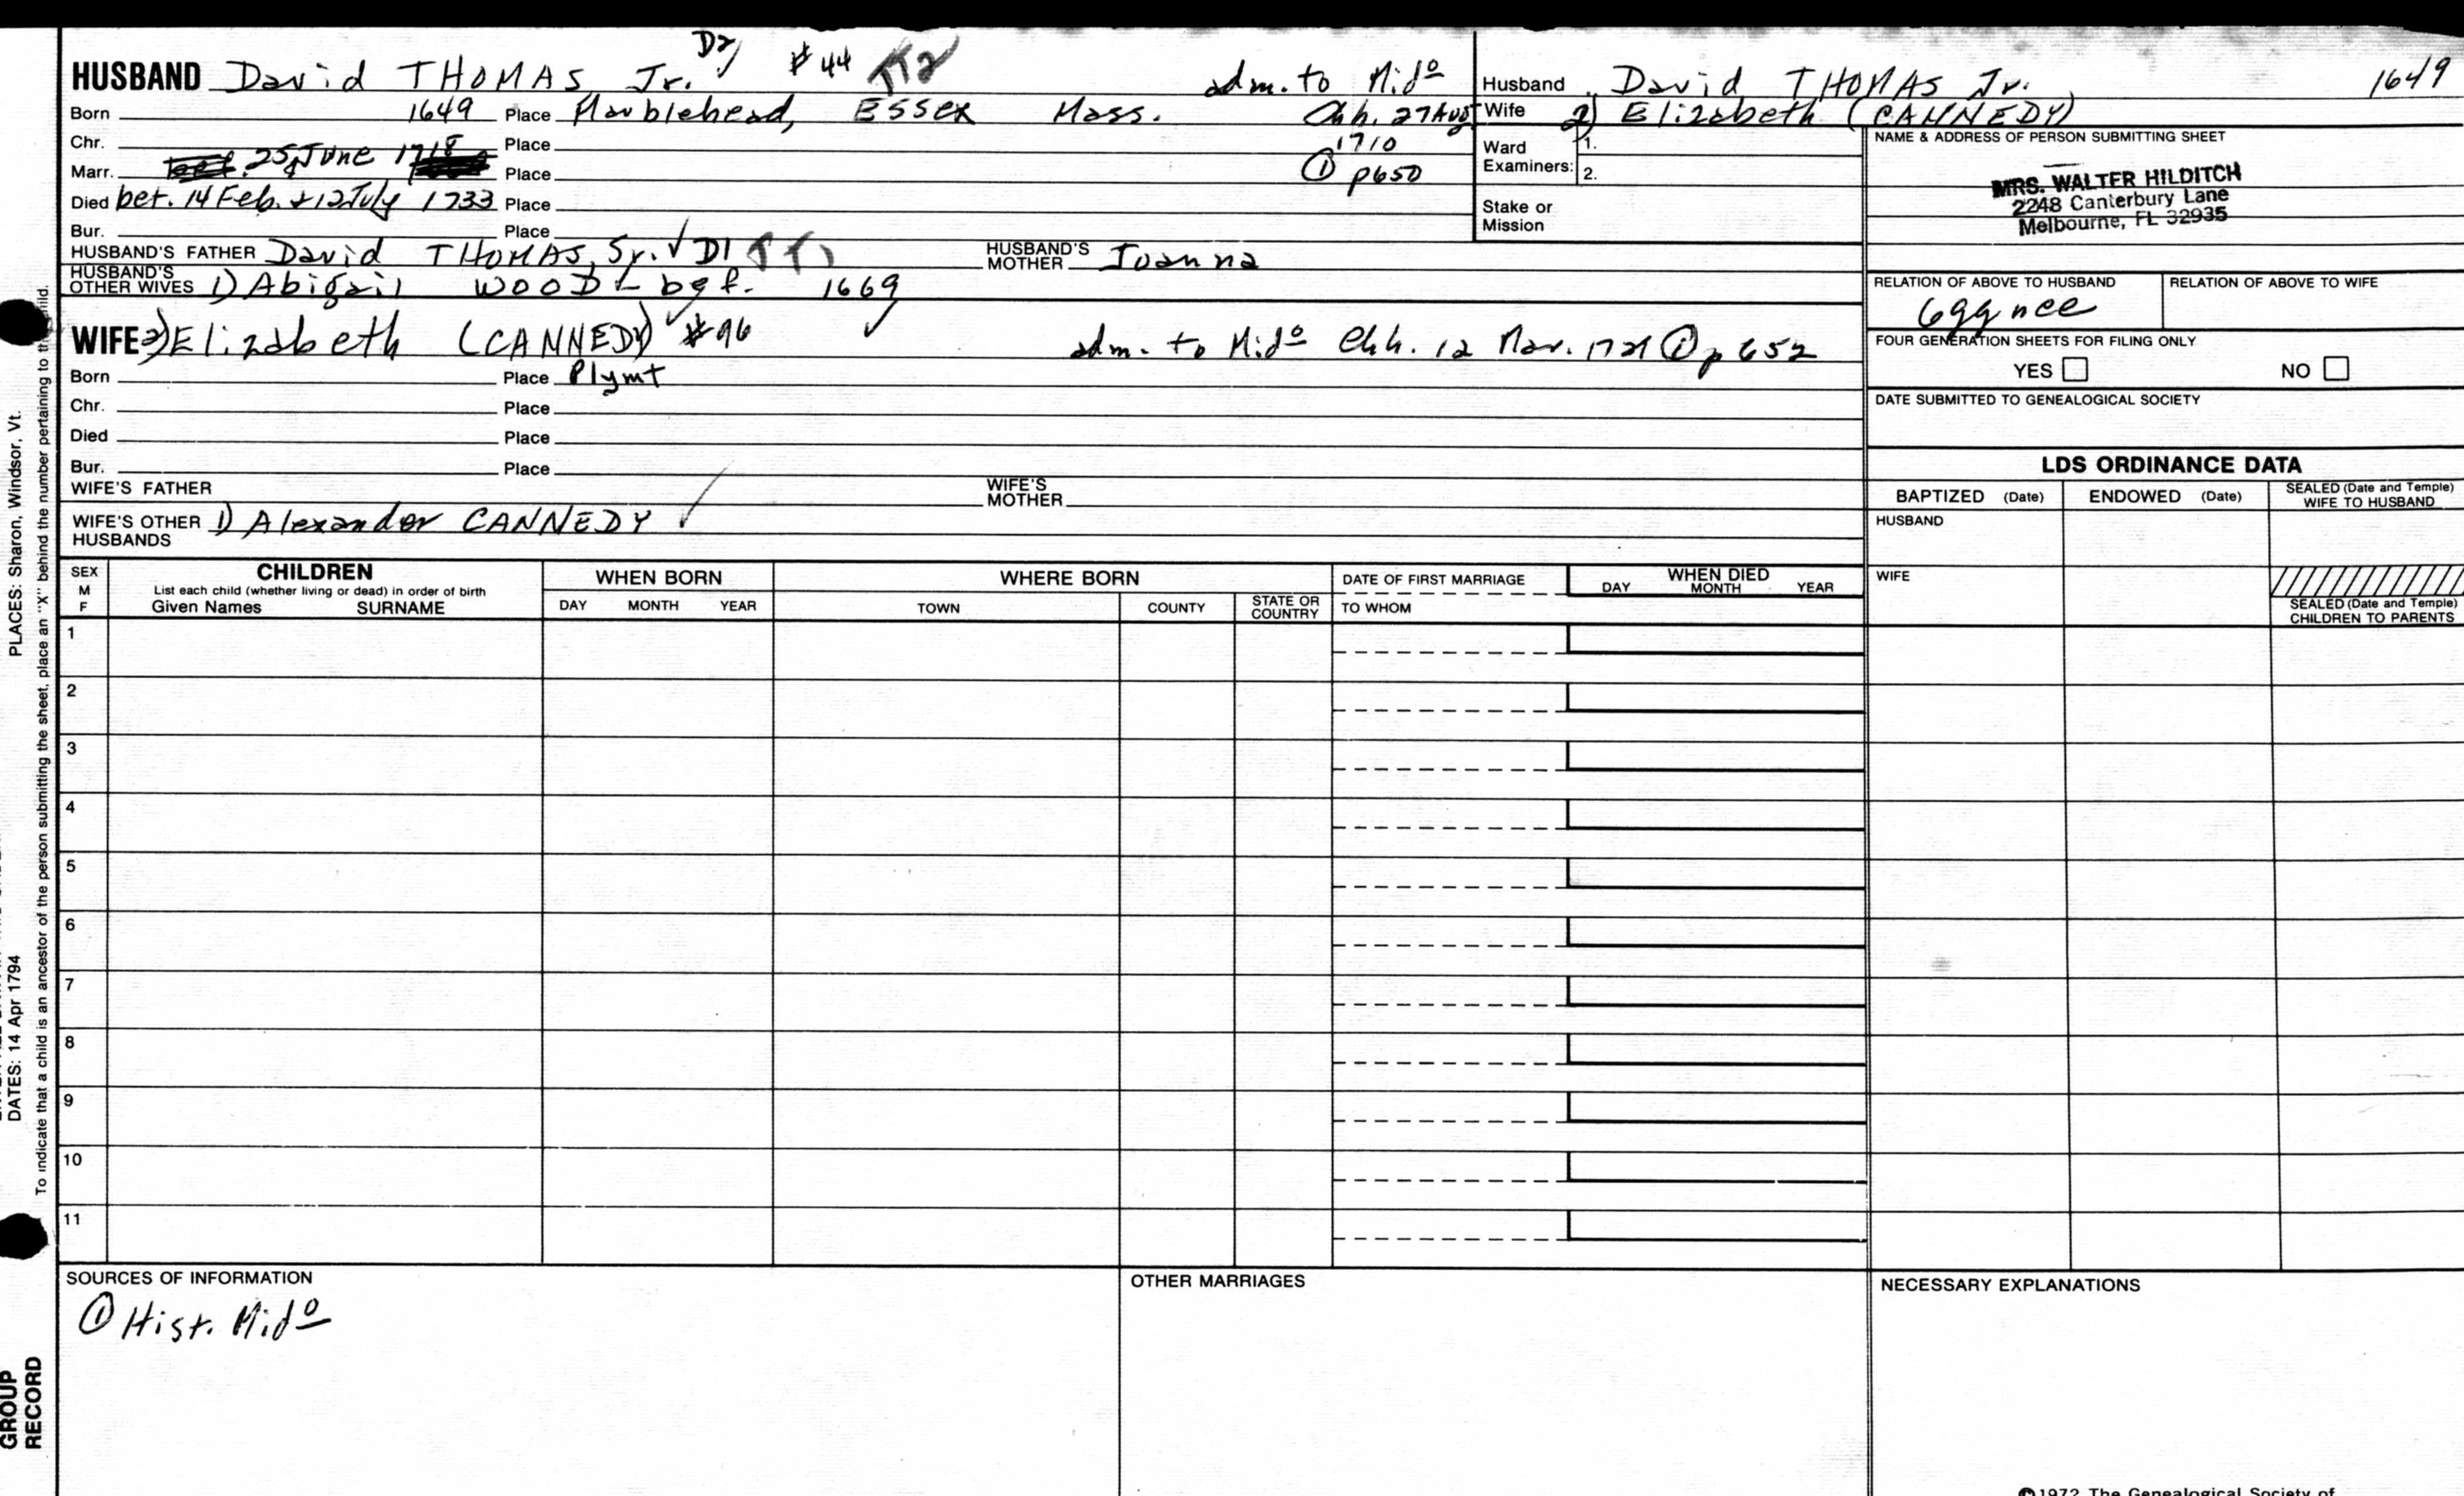 D2 #44 TT2
HUSBAND David THOMAS Jr. adm. to Mido
Born 1649 Place Marblehead, Essex Mass. Chh. 27 Aug
Chr. Place 1710
Marr. 25 June 1718 Place ① p650
Died bet. 14 Feb. + 12 July 1733 Place
Bur. Place
HUSBAND'S FATHER David THOMAS, Sr. ✓ D1 HUSBAND'S MOTHER Joanna
HUSBAND'S OTHER WIVES 1) Abigail WOOD - bef. 1669
WIFE 2) Elizabeth (CANNEDY) #96 adm. to Mido Chh. 12 Mar. 1721 ① p 652
Born Place Plymt
Chr. Place
Died Place
Bur. Place
WIFE'S FATHER WIFE'S MOTHER
WIFE'S OTHER HUSBANDS 1) Alexander CANNEDY ✓
Husband David THOMAS Jr. 1649
Wife 2) Elizabeth (CANNEDY)
Ward Examiners: 1.
2.
Stake or Mission
NAME & ADDRESS OF PERSON SUBMITTING SHEET
MRS. WALTER HILDITCH
2248 Canterbury Lane
Melbourne, FL 32935
RELATION OF ABOVE TO HUSBAND RELATION OF ABOVE TO WIFE
6gg nce
FOUR GENERATION SHEETS FOR FILING ONLY
YES NO
DATE SUBMITTED TO GENEALOGICAL SOCIETY
LDS ORDINANCE DATA
BAPTIZED (Date) ENDOWED (Date) SEALED (Date and Temple) WIFE TO HUSBAND
HUSBAND
WIFE
SEALED (Date and Temple) CHILDREN TO PARENTS
SEX M F
CHILDREN
List each child (whether living or dead) in order of birth
Given Names SURNAME
WHEN BORN
DAY MONTH YEAR
WHERE BORN
TOWN COUNTY STATE OR COUNTRY
DATE OF FIRST MARRIAGE
TO WHOM
WHEN DIED
DAY MONTH YEAR
1
2
3
4
5
6
7
8
9
10
11
SOURCES OF INFORMATION
① Hist. Mido
OTHER MARRIAGES
NECESSARY EXPLANATIONS
©1972 The Genealogical Society of
PLACES: Sharon, Windsor, Vt.
DATES: 14 Apr 1794
To indicate that a child is an ancestor of the person submitting the sheet, place an "X" behind the number pertaining to child.
GROUP
RECORD